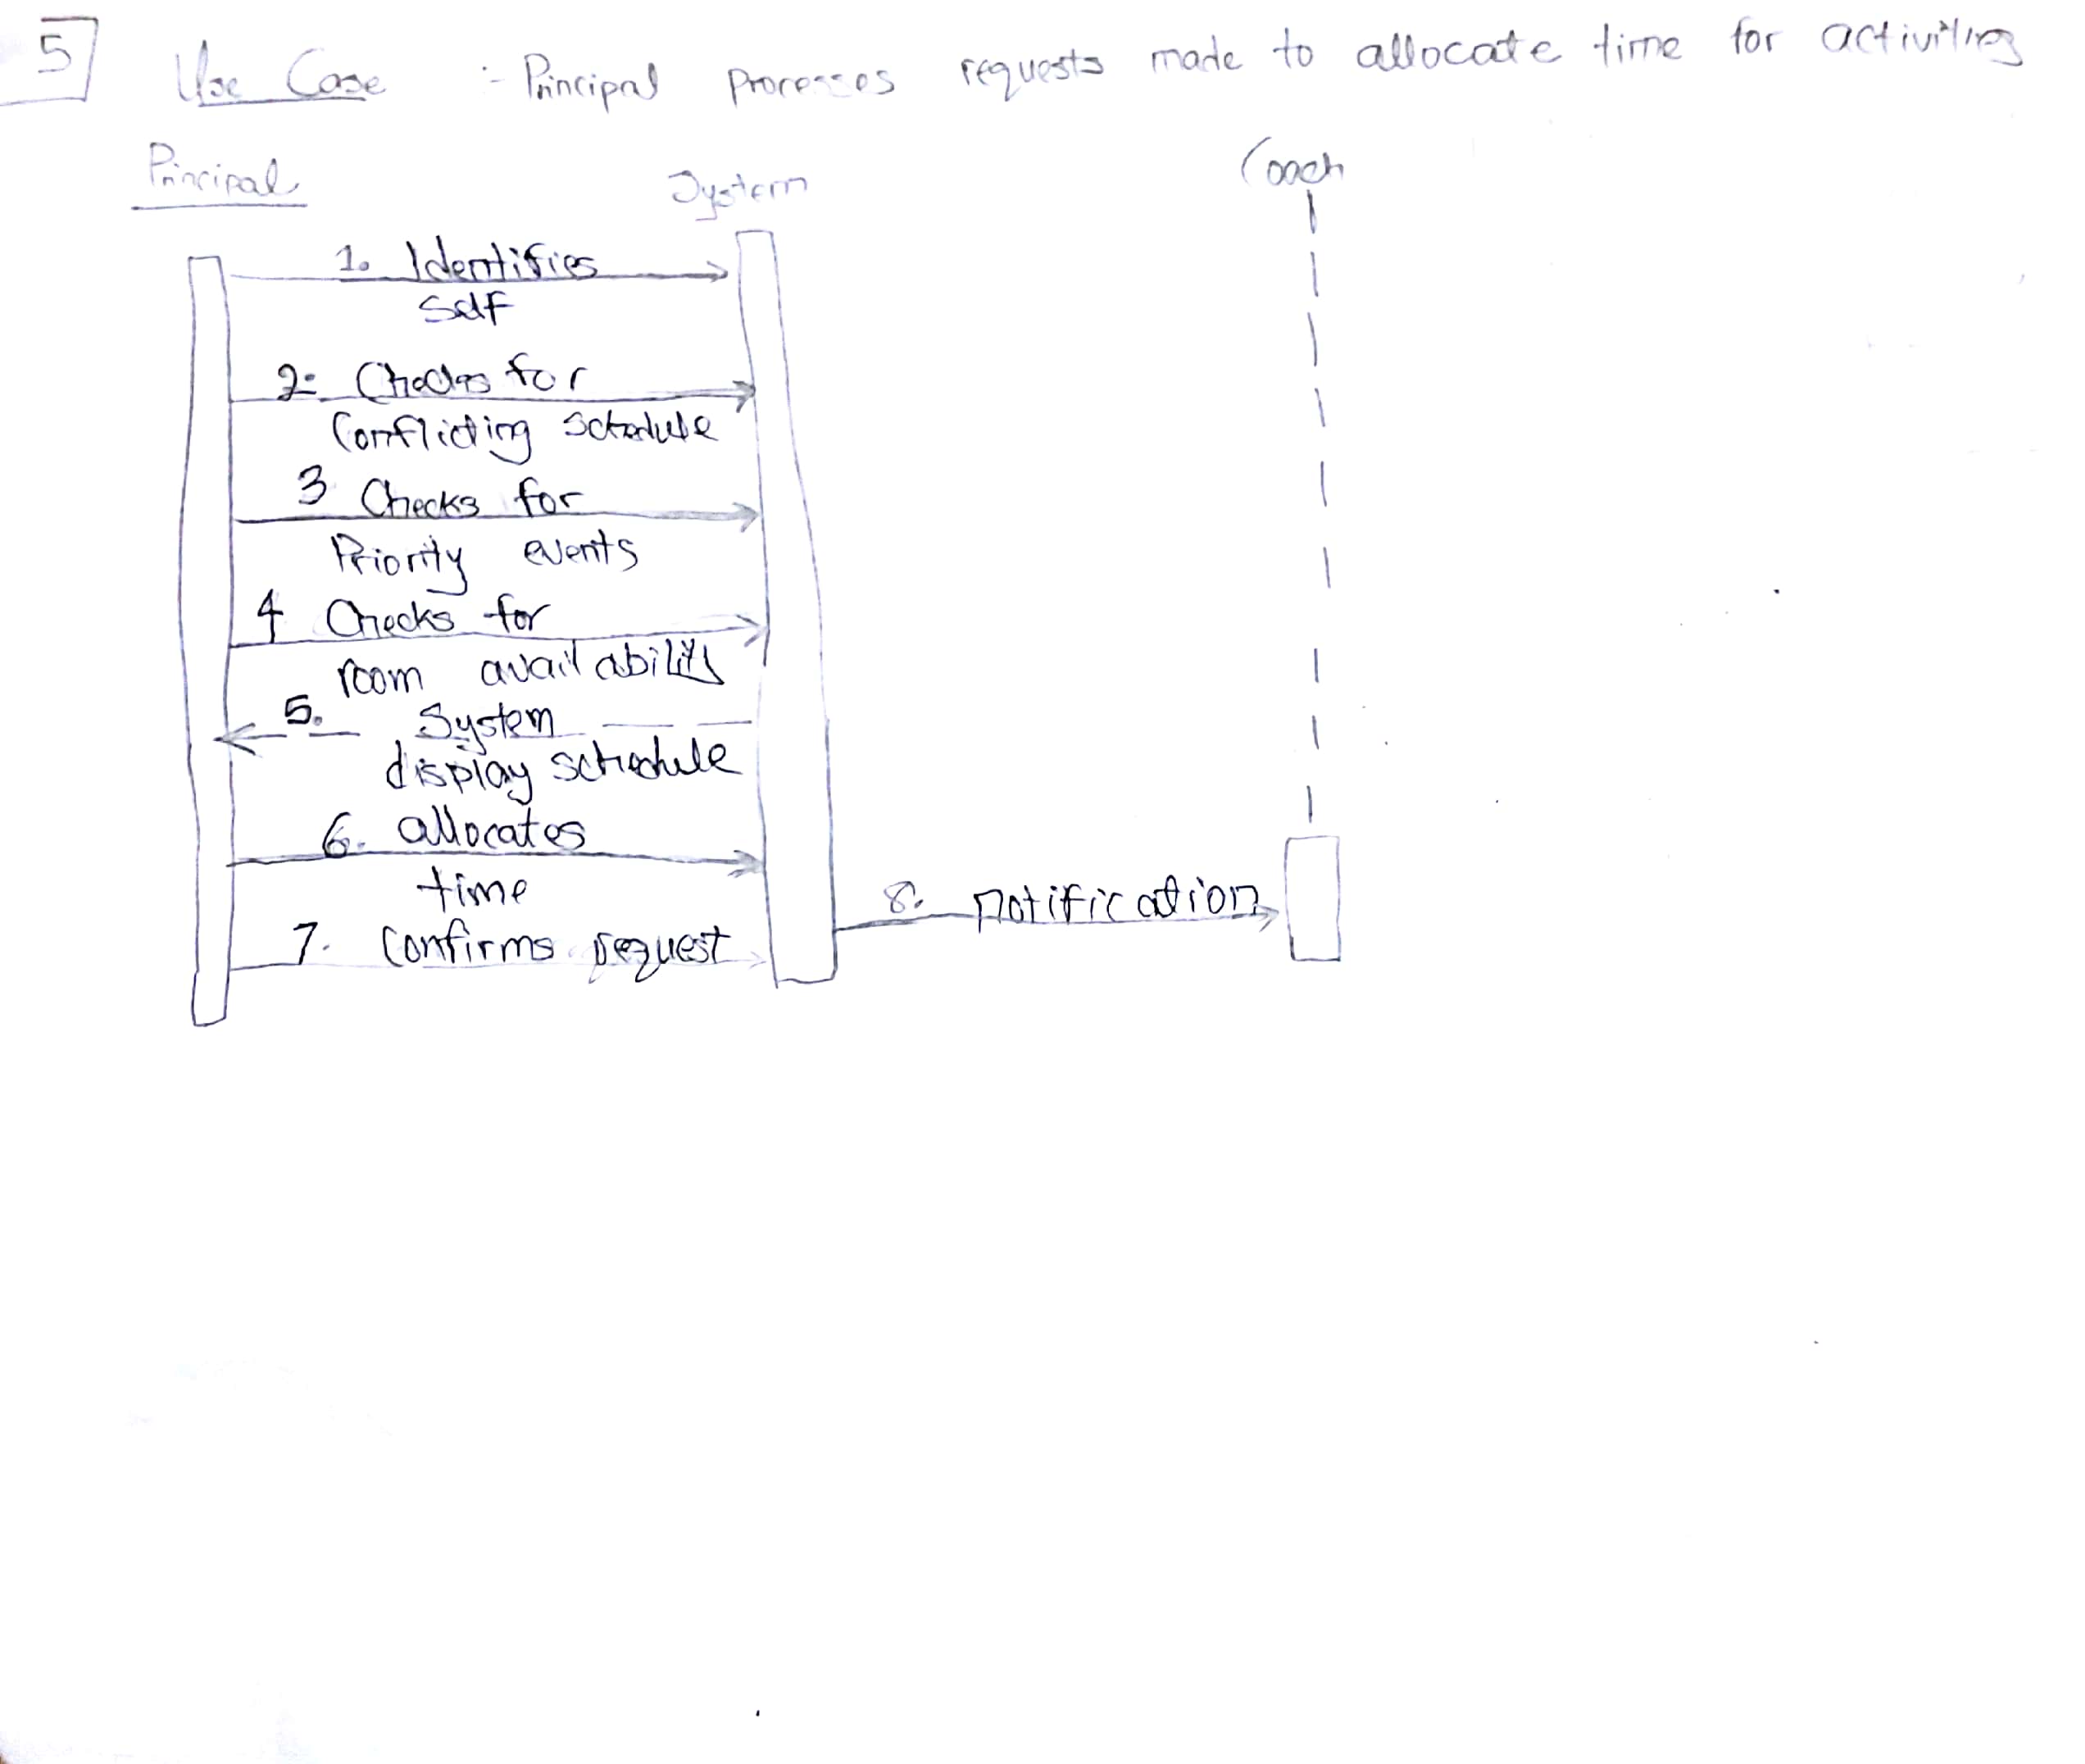 5
Use Case :- Principal processes requests made to allocate time for activities
Principal
System
Coach
1. Identifies
self
2. Checks for
Conflicting schedule
3 Checks for
Priority events
4 Checks for
room availability
5. System
display schedule
6. allocates
time
7. Confirms request
8. notification